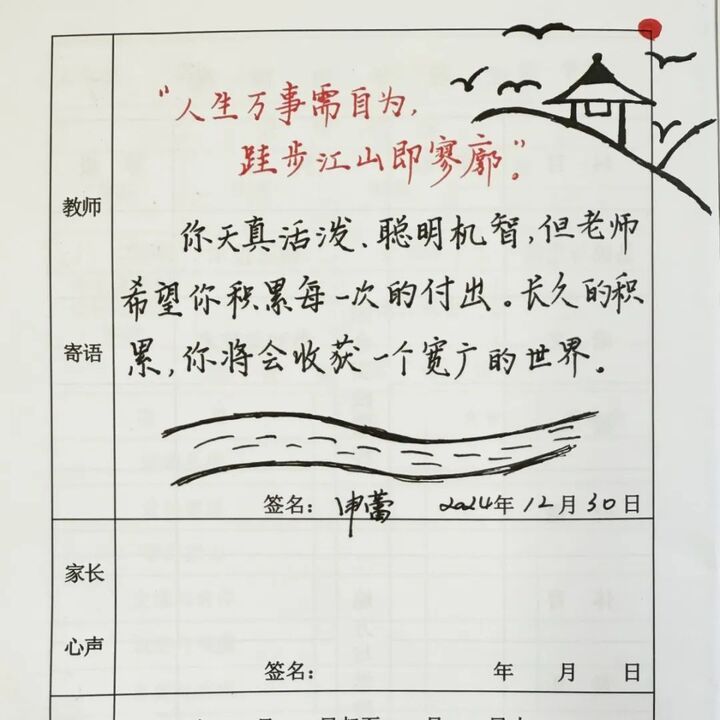 “人生万事需自为,
跬步江山即寥廓”。
你天真活泼、聪明机智,但老师
希望你积累每一次的付出。长久的积
累,你将会收获一个宽广的世界。
教师
寄语
签名: 申蕾 2024年12月30日
家长
心声
签名: 年 月 日